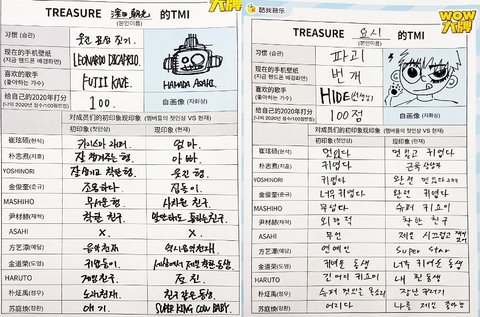 TREASURE 的TMI
(본인이름)
习惯 (습관) 웃긴 표정 짓기.
现在的手机壁纸 LEONARDO DICAPRIO.
(지금 핸드폰 배경화면)
喜欢的歌手 FUJII KAZE.
(좋아하는 가수)
给自己的2020年打分 100.
(나의 2020년 점수/100점만점)
HAMADA ASAHI.
自画像 (자화상)
对成员们的初印象现印象 (멤버들의 첫인상 VS 현재)
初印象 (첫인상) 现印象 (현재)
崔玹硕(현석) 카리스마 래퍼. 엄마.
朴志焄(지훈) 잘 챙겨주는 형. 아빠.
YOSHINORI 착한 형. 웃긴 형.
金俊奎(준규) 조용하다.
MASHIHO 무서운 형. 친구.
尹材赫(재혁) 착한 친구. 친구.
ASAHI X. X.
方艺潭(예담) 음악천재. 역시 음악천재.
金道荣(도영) 귀염둥이. 제일 착한 동생.
HARUTO 게임친구.
朴炡禹(정우) 노래천재. 친구같은 동생.
苏庭焕(정환) 애기. SUPER KING COW BABY.
酷我音乐
WOW大牌
TREASURE 요시 的TMI
(본인이름)
习惯 (습관) 파괴
现在的手机壁纸 번개
(지금 핸드폰 배경화면)
喜欢的歌手 HIDE
(좋아하는 가수)
给自己的2020年打分 100점
(나의 2020년 점수/100점만점)
自画像 (자화상)
对成员们的初印象现印象 (멤버들의 첫인상 VS 현재)
初印象 (첫인상) 现印象 (현재)
崔玹硕(현석) 멋있다 멋있고 귀엽다
朴志焄(지훈) 귀엽다 근육
YOSHINORI 귀엽다 완전
金俊奎(준규) 너무 귀엽다 완전 귀엽다
MASHIHO 무섭다 슈퍼 귀요미
尹材赫(재혁) 외향적 착한 친구
ASAHI 무언 제일 시끄럽고
方艺潭(예담) 연예인 super star
金道荣(도영) 귀여운 동생 너무 귀여운 동생
HARUTO 긴 머리 귀요미 내 찐 동생
朴炡禹(정우) 슈퍼 멋있는 목소리 장난꾸러기
苏庭焕(정환) 어리다 나를 제일 좋아함